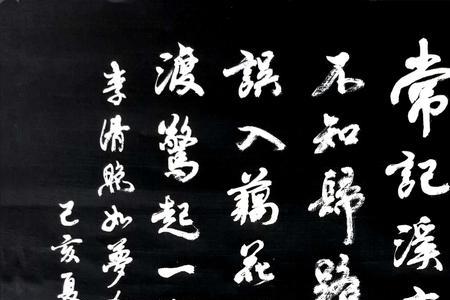 常記溪
不知歸路
誤入藕花
渡驚起一
李清照如夢
己亥夏